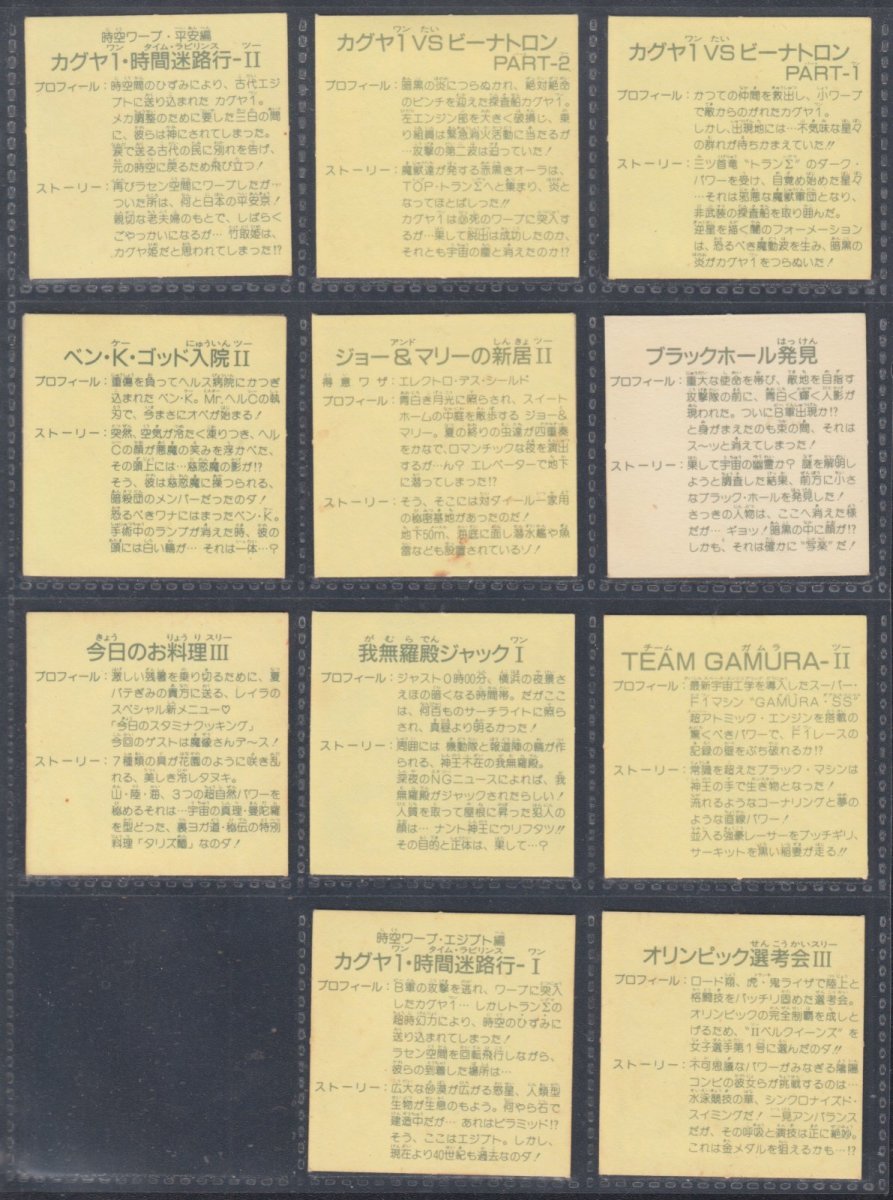 時空ワープ・平安編
カグヤ1・時間迷路行-II
プロフィール：時空間のひずみにより、古代エジ
プトに送り込まれた カグヤ1。
メカ調整のために要した三日の間
に、彼らは神にされてしまった。
涙で送る古代の民に別れを告げ、
元の時空に戻るため飛び立つ！
ストーリー：再びラセン空間にワープしたが…
ついた所は、何と日本の平安京！
親切な老夫婦のもとで、しばらく
ごやっかいになるが… 竹取姫は、
カグヤ姫だと思われてしまった!?
カグヤ1 VS ビーナトロン
PART-2
プロフィール：暗黒の炎につらぬかれ、絶対絶命
のピンチを迎えた探査船カグヤ1。
左エンジン部を大きく破損し、乗
り組員は緊急消火活動に当たるが
…攻撃の第二波は迫っていた！
ストーリー：魔獣達が発する赤黒きオーラは、
TOP・トランΣへと集まり、炎と
なってほとばしった!!
カグヤ1は必死のワープに突入す
るが…果して脱出は成功したのか、
それとも宇宙の塵と消えたのか!?
カグヤ1 VS ビーナトロン
PART-1
プロフィール：かつての仲間を救出し、小ワープ
で敵からのがれたカグヤ1。
しかし、出現地には…不気味な星々
の群れが待ちかまえていた!!
ストーリー：三ツ首竜 “トランΣ” のダーク・
パワーを受け、目覚め始めた星々
…それは邪悪な魔獣軍団となり、
非武装の探査船を取り囲んだ。
逆星を描く闇のフォーメーション
は、恐るべき魔動波を生み、暗黒の
炎がカグヤ1をつらぬいた！
ベン・K・ゴッド入院II
プロフィール：重傷を負ってヘルス病院にかつぎ
込まれた ベン・K。Mr.ヘルCの執
刀で、今まさにオペが始まる！
ストーリー：突然、空気が冷たく凍りつき、ヘル
Cの顔が悪魔の笑みを浮かべた、
その頭上には…慈恋魔の影が!?
そう、彼は慈恋魔に操つられる、
暗殺団のメンバーだったのダ！
恐るべきワナにはまったベン・K。
手術中のランプが消えた時、彼の
頭には白い輪が… それは一体…？
ジョー&マリーの新居II
得意ワザ：エレクトロ・デス・シールド
プロフィール：青白き月光に照らされ、スイート
ホームの中庭を散歩する ジョー&
マリー。夏の終りの虫達が四重奏
をかなで、ロマンチックな夜を演出
するが…ん？ エレベーターで地下
に潜ってしまった!?
ストーリー：そう、そこには対ダイール一家用
の秘密基地があったのだ！
地下50m、海底に面し潜水艦や魚
雷なども設置されているゾ！
ブラックホール発見
プロフィール：重大な使命を帯び、敵地を目指す
攻撃隊の前に、青白く輝く人影が
現われた。ついにB軍出現か!?
と身がまえたのも束の間、それは
ス〜ッと消えてしまった！
ストーリー：果して宇宙の幽霊か？ 謎を解明し
ようと調査した結果、前方に小さ
なブラック・ホールを発見した！
さっきの人物は、ここへ消えた様
だが… ギョッ！暗黒の中に顔が!?
しかも、それは確かに “写楽” だ！
今日のお料理III
プロフィール：激しい残暑を乗り切るために、夏
バテぎみの貴方に送る、レイラの
スペシャル新メニュー♡
「今日のスタミナクッキング」
今回のゲストは魔像さんデース！
ストーリー：7種類の具が花園のように咲き乱
れる、美しき冷しタヌキ。
山・陸・海、3つの超自然パワーを
秘めるそれは…宇宙の真理・曼陀羅
を型どった、裏ヨガ道・秘伝の特別
料理「タリズ麺」なのダ！
我無羅殿ジャックI
プロフィール：ジャスト0時00分、横浜の夜景さ
えほの暗くなる時間帯。だがここ
は、何百ものサーチライトに照ら
され、真昼より明るかった！
ストーリー：周囲には 機動隊と報道陣の輪が作
られる、神王不在の我無羅殿。
深夜のNGニュースによれば、我
無羅殿がジャックされたらしい！
人質を取って屋根に昇った犯人の
顔は… ナント神王にウリフタツ!!
その目的と正体は、果して…？
TEAM GAMURA-II
プロフィール：最新宇宙工学を導入したスーパー・
F1マシン “GAMURA・SS”
超アトミック・エンジンを搭載の
驚くべきパワーで、F1レースの
記録の壁をぶち破れるか!?
ストーリー：常識を超えたブラック・マシンは
神王の手で生き物となった！
流れるようなコーナリングと夢の
ような直線パワー！
並入る強豪レーサーをブッチギリ、
サーキットを黒い稲妻が走る!!
時空ワープ・エジプト編
カグヤ1・時間迷路行-I
プロフィール：B軍の攻撃を逃れ、ワープに突入
したカグヤ1… しかしトランΣの
超時幻力により、時空のひずみに
送り込まれてしまった！
ラセン空間を回転飛行しながら、
彼らの到着した場所は…
ストーリー：広大な砂漠が広がる惑星、人類型
生物が生息のもよう。何やら石で
建造中だが… あれはピラミッド!?
そう、ここはエジプト。しかし、
現在より40世紀も過去なのダ！
オリンピック選考会III
プロフィール：ロード翔、虎・鬼ライザで陸上と
格闘技をバッチリ固めた選考会。
オリンピックの完全制覇を成しと
げるため、“IIベルクイーンズ” を
女子選手第1号に選んだのダ!!
ストーリー：不可思議なパワーがみなぎる陰陽
コンビの彼女らが挑戦するのは…
水泳競技の華、シンクロナイズド・
スイミングだ！ 一見アンバランス
だが、その呼吸と演技は正に絶妙。
これは金メダルを狙えるかも…!?